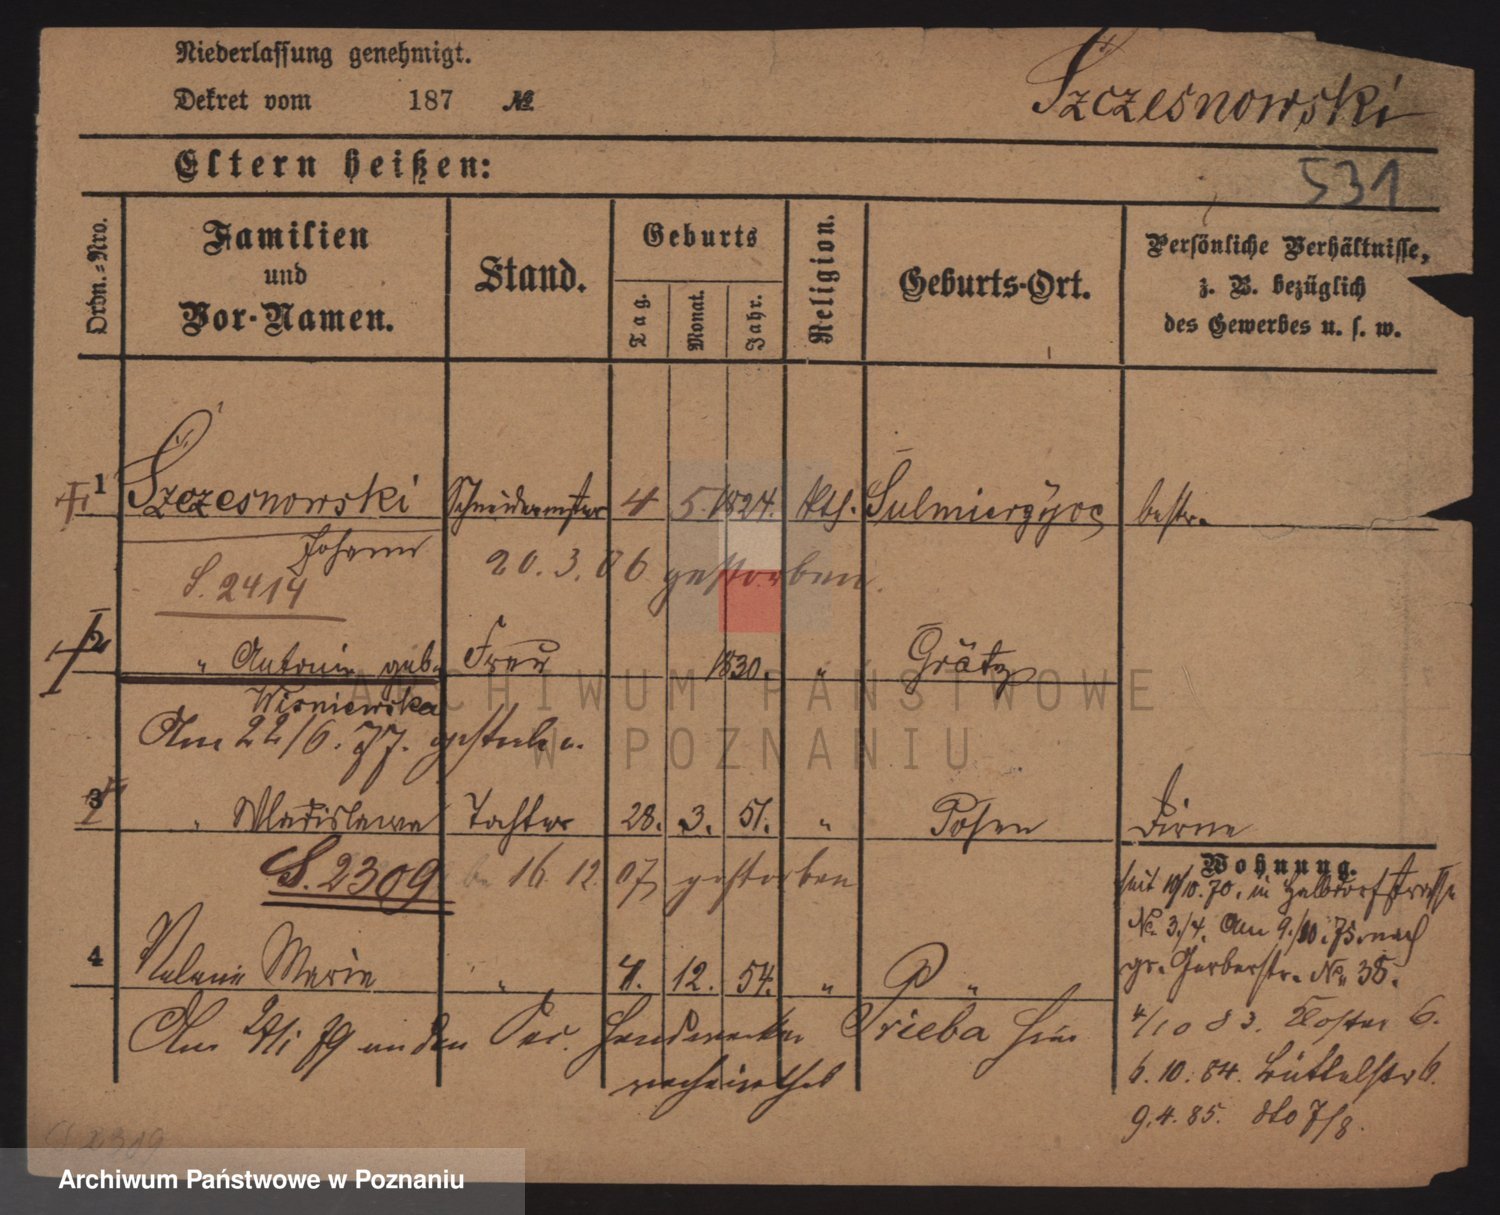 Niederlassung genehmigt.
Dekret vom 187 №
Szczesnowski
531
Eltern heißen:
Ordn.=Nro.
Familien
und
Vor-Namen.
Stand.
Geburts
Tag.
Monat.
Jahr.
Religion.
Geburts-Ort.
Persönliche Verhältnisse,
z. B. bezüglich
des Gewerbes u. s. w.
1 Szczesnowski Schneidermstr 4 5. 1824. kth. Sulmierzyce bestr.
Johann
S. 2414
20. 3. 06 gestorben.
2 " Antonie geb. Frau 1830. " Grätz
Wisniewska
Am 22/6. 77. gestorben.
3 " Wladislawa Tochter 28. 3. 51. " Posen Dirne
S. 2309 16. 12. 07 gestorben
Wohnung.
seit 10/10. 70. in Halbdorfstrasse
№ 3/4. Am 9./10. 75. nach
gr. Gerberstr. № 38.
4 Marie " 4. 12. 54. " P "
Am 79 an den Handwerker Trieba hier
verheirathet
4/10 83. Kloster 6.
6. 10. 84. Büttelstr 6.
9. 4. 85. dto 7/8.
S 2309
ARCHIWUM PAŃSTWOWE
W POZNANIU
Archiwum Państwowe w Poznaniu